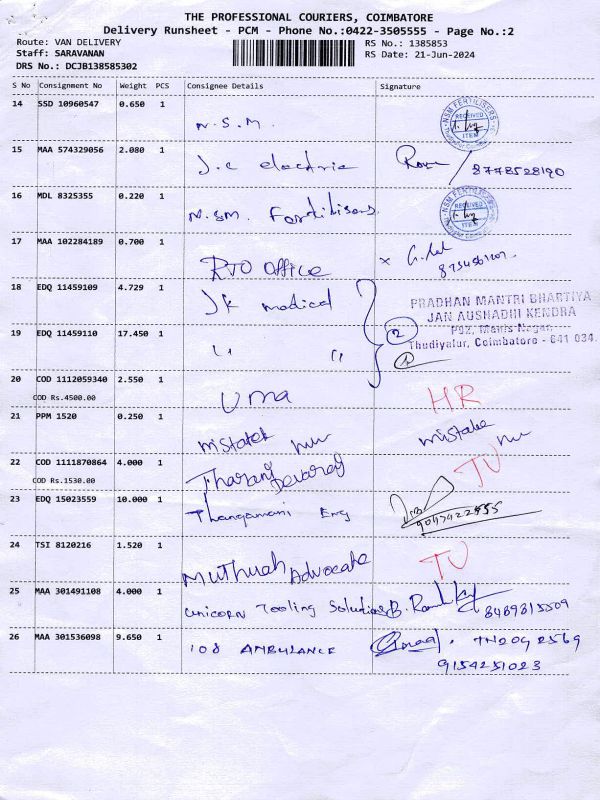 THE PROFESSIONAL COURIERS, COIMBATORE
Delivery Runsheet - PCM - Phone No.:0422-3505555 - Page No.:2
Route: VAN DELIVERY
RS No.: 1385853
Staff: SARAVANAN
RS Date: 21-Jun-2024
DRS No.: DCJB138585302
S No Consignment No Weight PCS Consignee Details Signature
14 SSD 10960547 0.650 1 N.S.M. NSM FERTILISERS RECEIVED ITEM
15 MAA 574329056 2.080 1 J.C electric 8778528190
16 MDL 8325355 0.220 1 N.SM. Fertilisers NSM FERTILISERS RECEIVED ITEM
17 MAA 102284189 0.700 1 RTO Office
18 EDQ 11459109 4.729 1 JK medical
PRADHAN MANTRI BHARTIYA
JAN AUSHADHI KENDRA
19 EDQ 11459110 17.450 1 " " 2
Thudiyalur, Coimbatore - 641 034.
20 COD 1112059340 2.550 1 Uma HR
COD Rs.4500.00
21 PPM 1520 0.250 1 mistake
22 COD 1111870864 4.000 1 TU
COD Rs.1530.00
23 EDQ 15023559 10.000 1 Thangamani Eng
24 TSI 8120216 1.520 1 Muthuah Advocate TU
25 MAA 301491108 4.000 1 Unicorn Tooling Solutions
26 MAA 301536098 9.650 1 108 AMBULANCE
9154251023